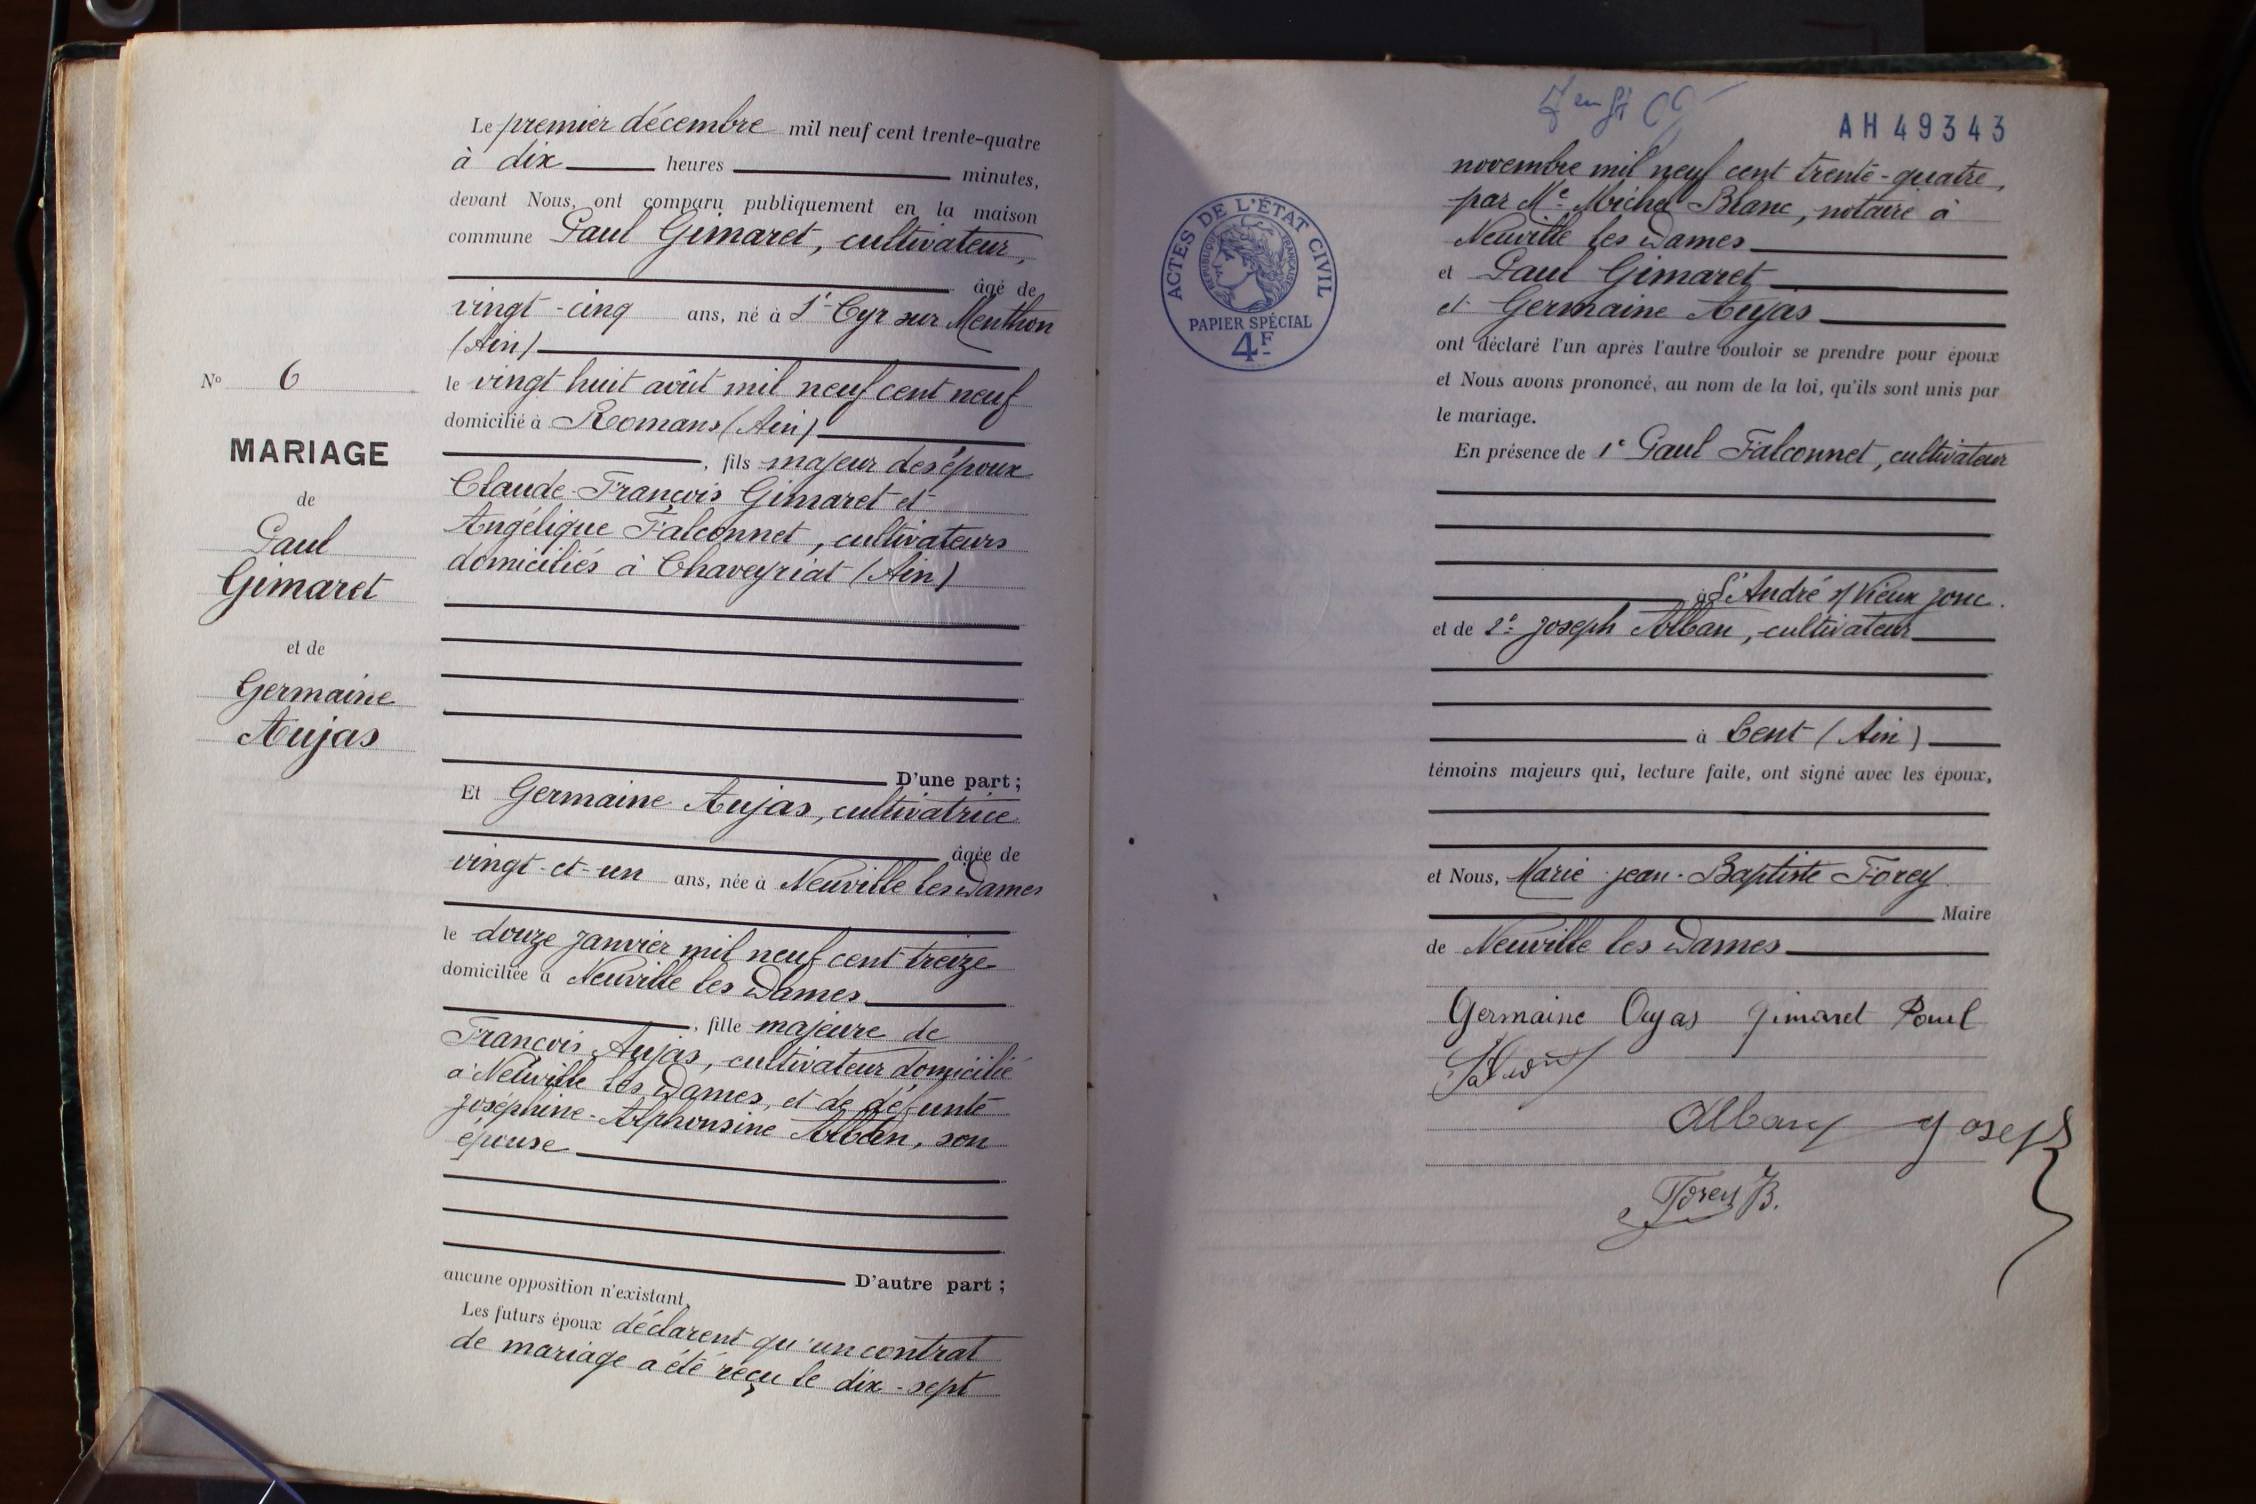 Le premier décembre mil neuf cent trente-quatre
à dix heures minutes,
devant Nous, ont comparu publiquement en la maison
commune Paul Gimaret, cultivateur,
âgé de
vingt-cinq ans, né à St Cyr sur Menthon
(Ain)
le vingt huit août mil neuf cent neuf
domicilié à Romans (Ain)
, fils majeur des époux
Claude-François Gimaret et
Angélique Falconnet, cultivateurs
domiciliés à Chaveyriat (Ain)
D'une part ;
Et Germaine Aujas, cultivatrice
âgée de
vingt-et-un ans, née à Neuville les Dames
le douze janvier mil neuf cent treize
domiciliée à Neuville les Dames
, fille majeure de
François Aujas, cultivateur domicilié
à Neuville les Dames, et de défunte
Joséphine-Alphonsine Alban, son
épouse
D'autre part ;
aucune opposition n'existant,
Les futurs époux déclarent qu'un contrat
de mariage a été reçu le dix-sept
No 6
MARIAGE
de
Paul
Gimaret
et de
Germaine
Aujas
AH 49343
ACTES DE L'ÉTAT CIVIL
RÉPUBLIQUE FRANÇAISE
PAPIER SPÉCIAL
4F
novembre mil neuf cent trente-quatre,
par Me Michel Blanc, notaire à
Neuville les Dames
et Paul Gimaret
et Germaine Aujas
ont déclaré l'un après l'autre vouloir se prendre pour époux
et Nous avons prononcé, au nom de la loi, qu'ils sont unis par
le mariage.
En présence de 1e Paul Falconnet, cultivateur
à St André s/ Vieux Jonc.
et de 2e Joseph Alban, cultivateur
à Cent (Ain)
témoins majeurs qui, lecture faite, ont signé avec les époux,
et Nous, Marie-Jean-Baptiste Forey
Maire
de Neuville les Dames
Germaine Aujas Gimaret Paul
Alban Joseph
Forey B.